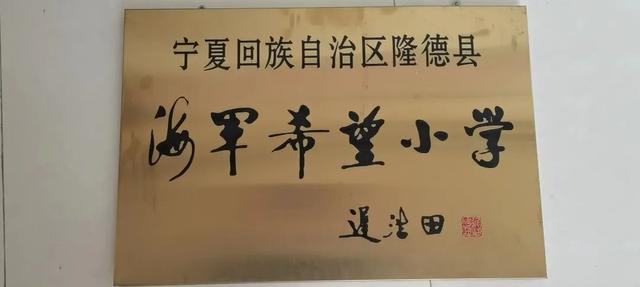 宁夏回族自治区隆德县
海军希望小学
迟浩田